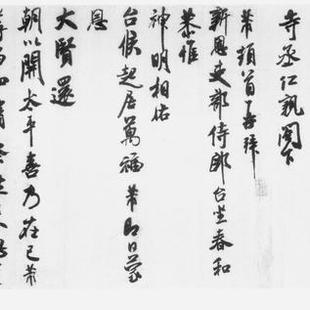 寺丞仁親閣下
芾頓首再拜
新恩吏部侍郎台坐春和
恭惟
神明相佑
台候起居萬福芾即日蒙
恩
大賢還
朝以開太平喜乃在己芾